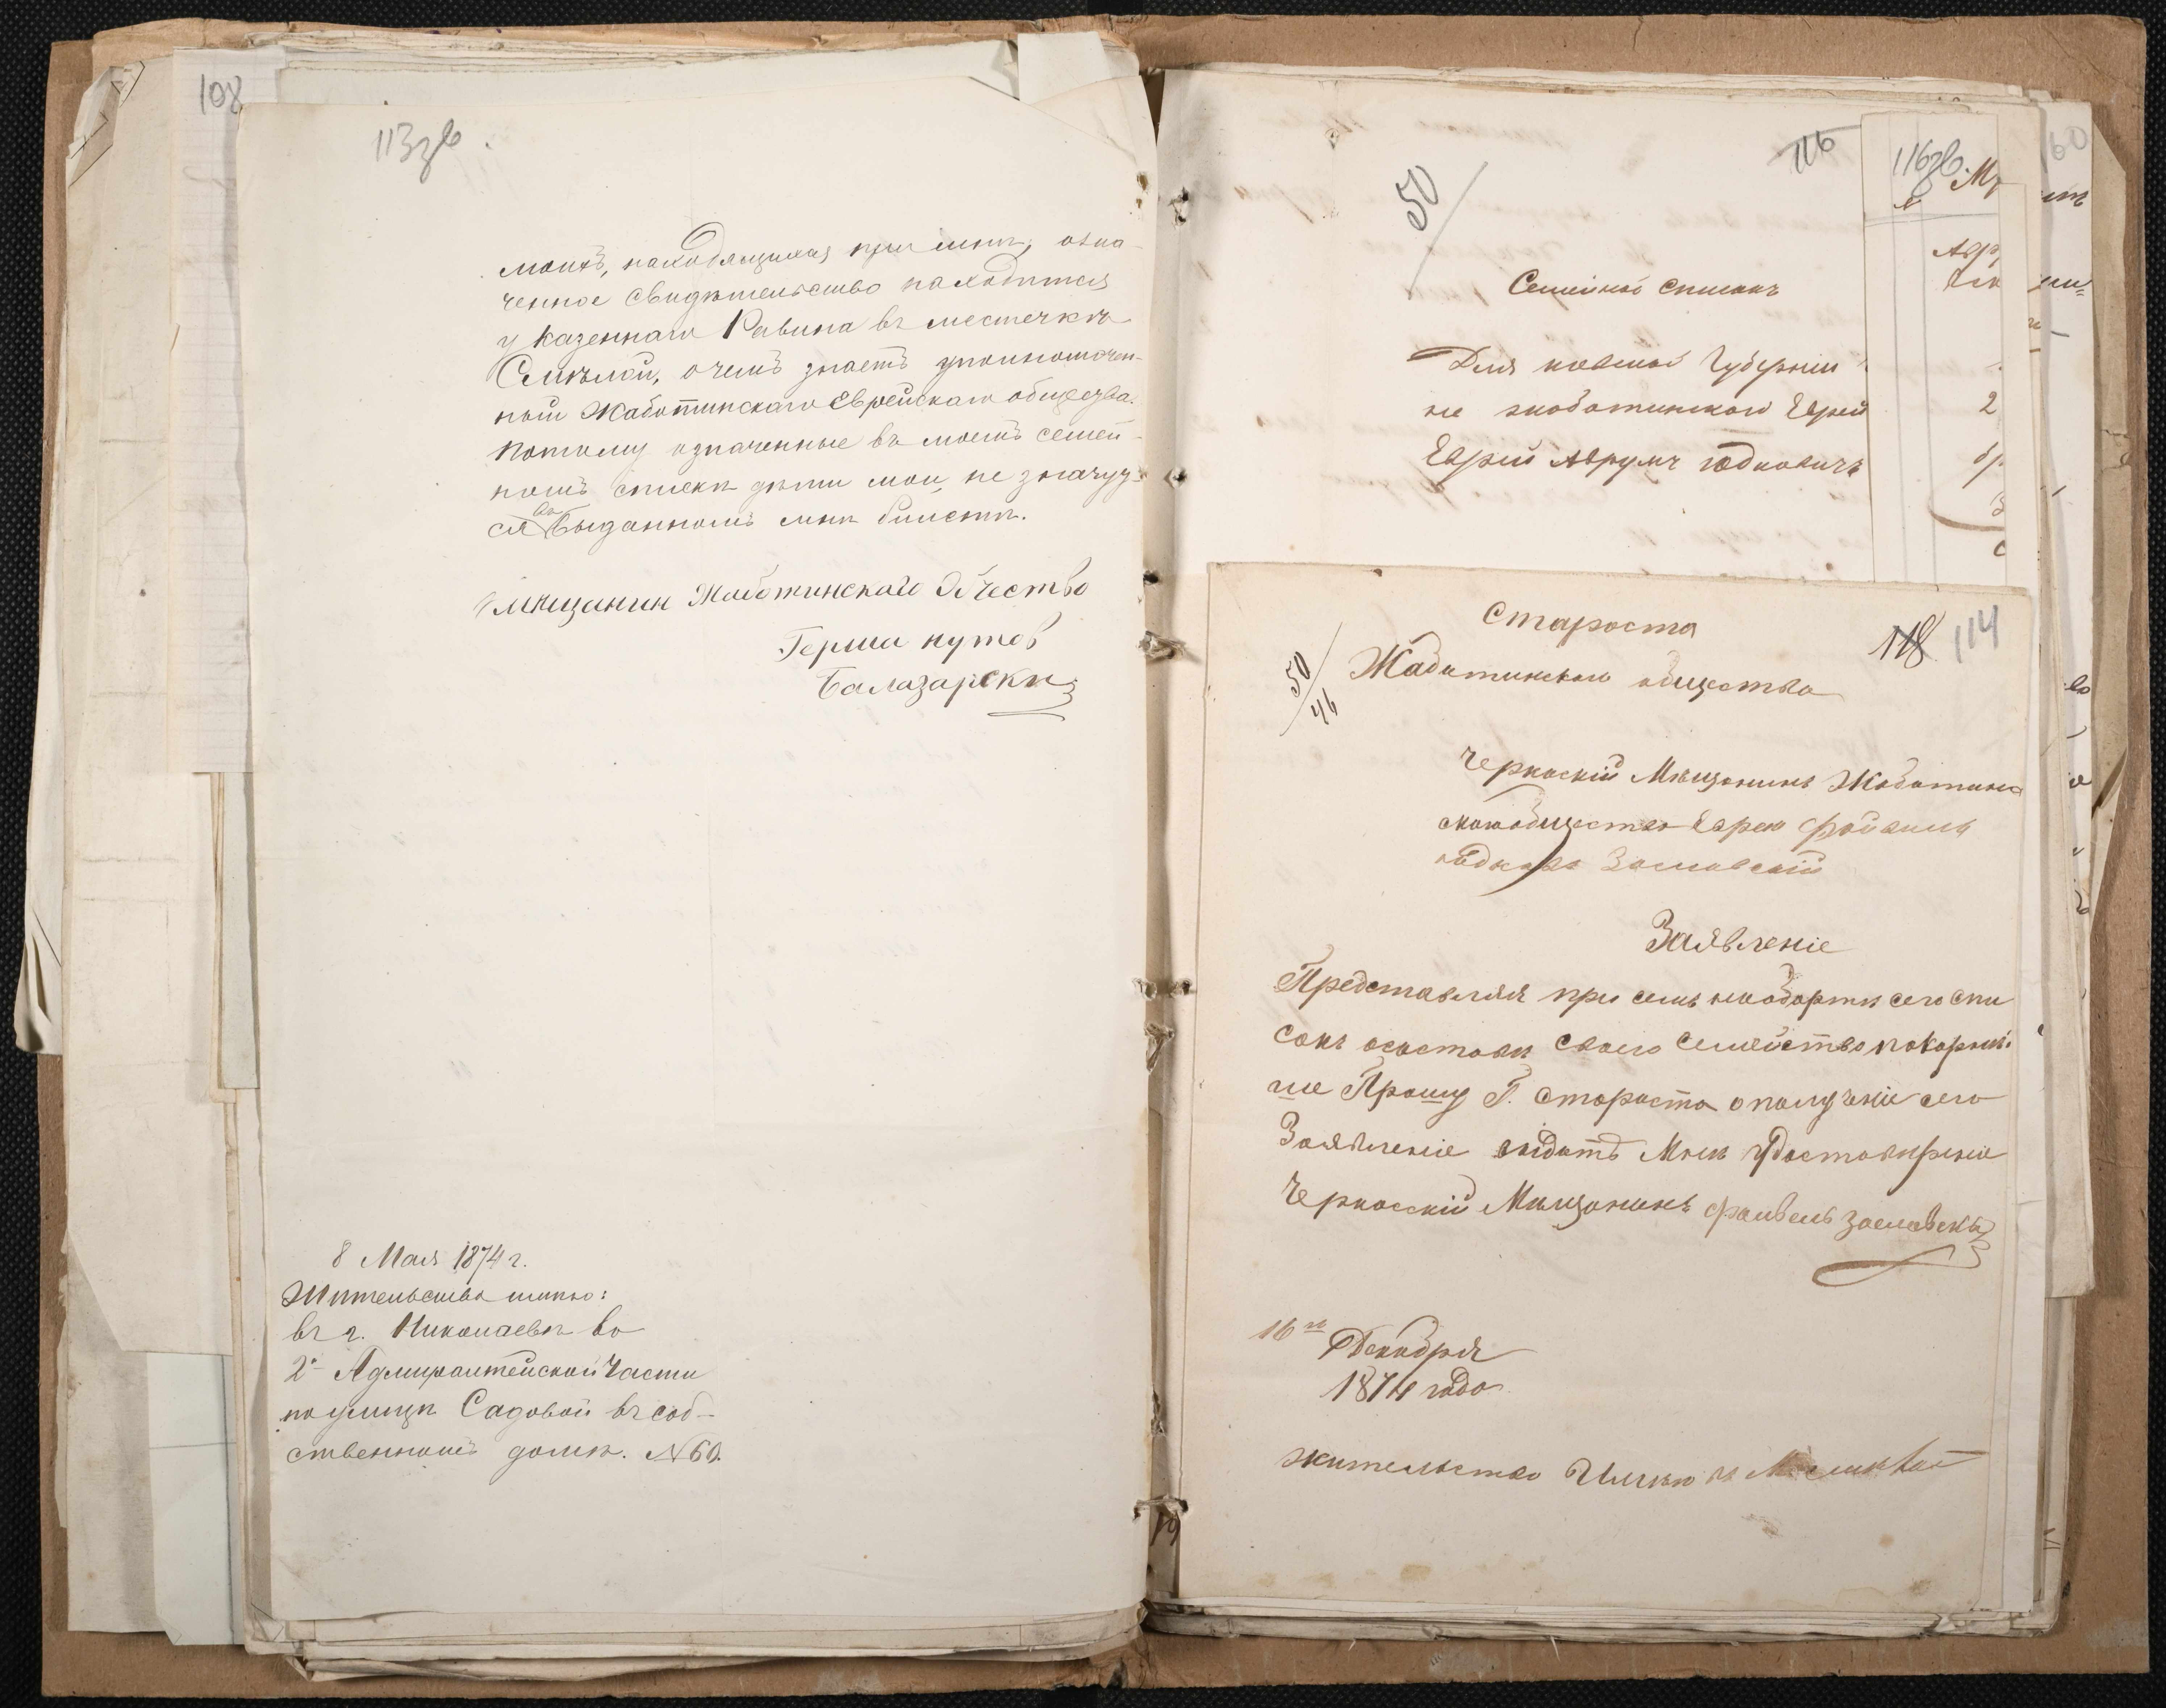 108
113зв.
моихъ, находящихся при мнѣ, озна-
ченное свидѣтельство находится
у казеннаго Равина въ местечкѣ
Смѣлой, о чемъ знаетъ уполномочен-
ный Жаботинскаго Еврейскаго общества.
Потому означенные въ моемъ семей-
номъ списке дѣти мои, не значут-
ся въ выданномъ мнѣ билетѣ.
Мѣщанин Жаботинскаго Обчество
Герша
8 Мая 1874 г.
Жительства имѣю:
въ г. Николаевѣ во
2й Адмиралтейской части
по улицѣ Садовой въ соб-
ственномъ домѣ. № 60.
116
50
Семѣйной списокъ
Для Губерніи
не жаботинского Еврей
Еврѣй Аврумъ Юдковичъ
116зв
М
Авр
2
3
60
Староста
118 114
50/46
Жаботинского общества
Черкаскій Мѣщанинъ Жаботинс
когообщества Еврея Файвиля
Заславскій
Заявленіе
Представляя при семъ наобортѣ сего спи
сокъ осоставѣ своего Семейства покорнѣй
ше Прошу Г. Староста ополученіе сего
Заявленіе видать Мнѣ Удоставѣреніе
Черкасскій Мѣщанинъ Фаивель Заславски
16го Декабря
1874 года
жительство Имѣю